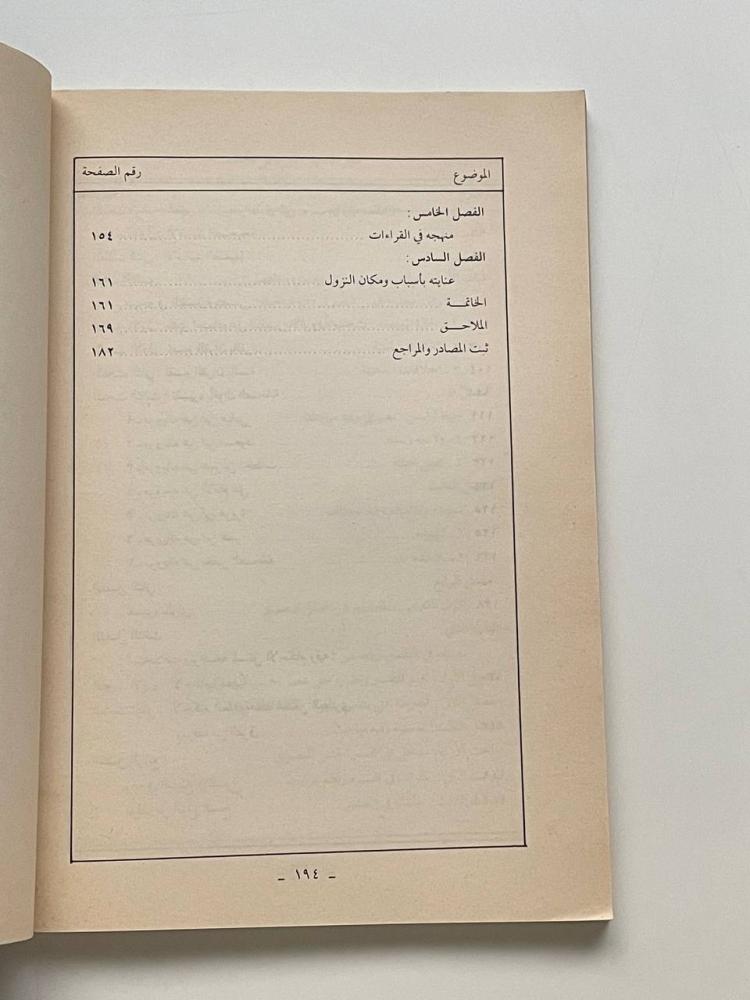 الموضوع رقم الصفحة
الفصل الخامس :
منهجه في القراءات ........................ ١٥٤
الفصل السادس :
عنايته بأسباب ومكان النزول ........................ ١٦١
الخاتمــة ........................ ١٦١
الملاحــق ........................ ١٦٩
ثبت المصادر والمراجع ........................ ١٨٢
ـ ١٩٤ ـ